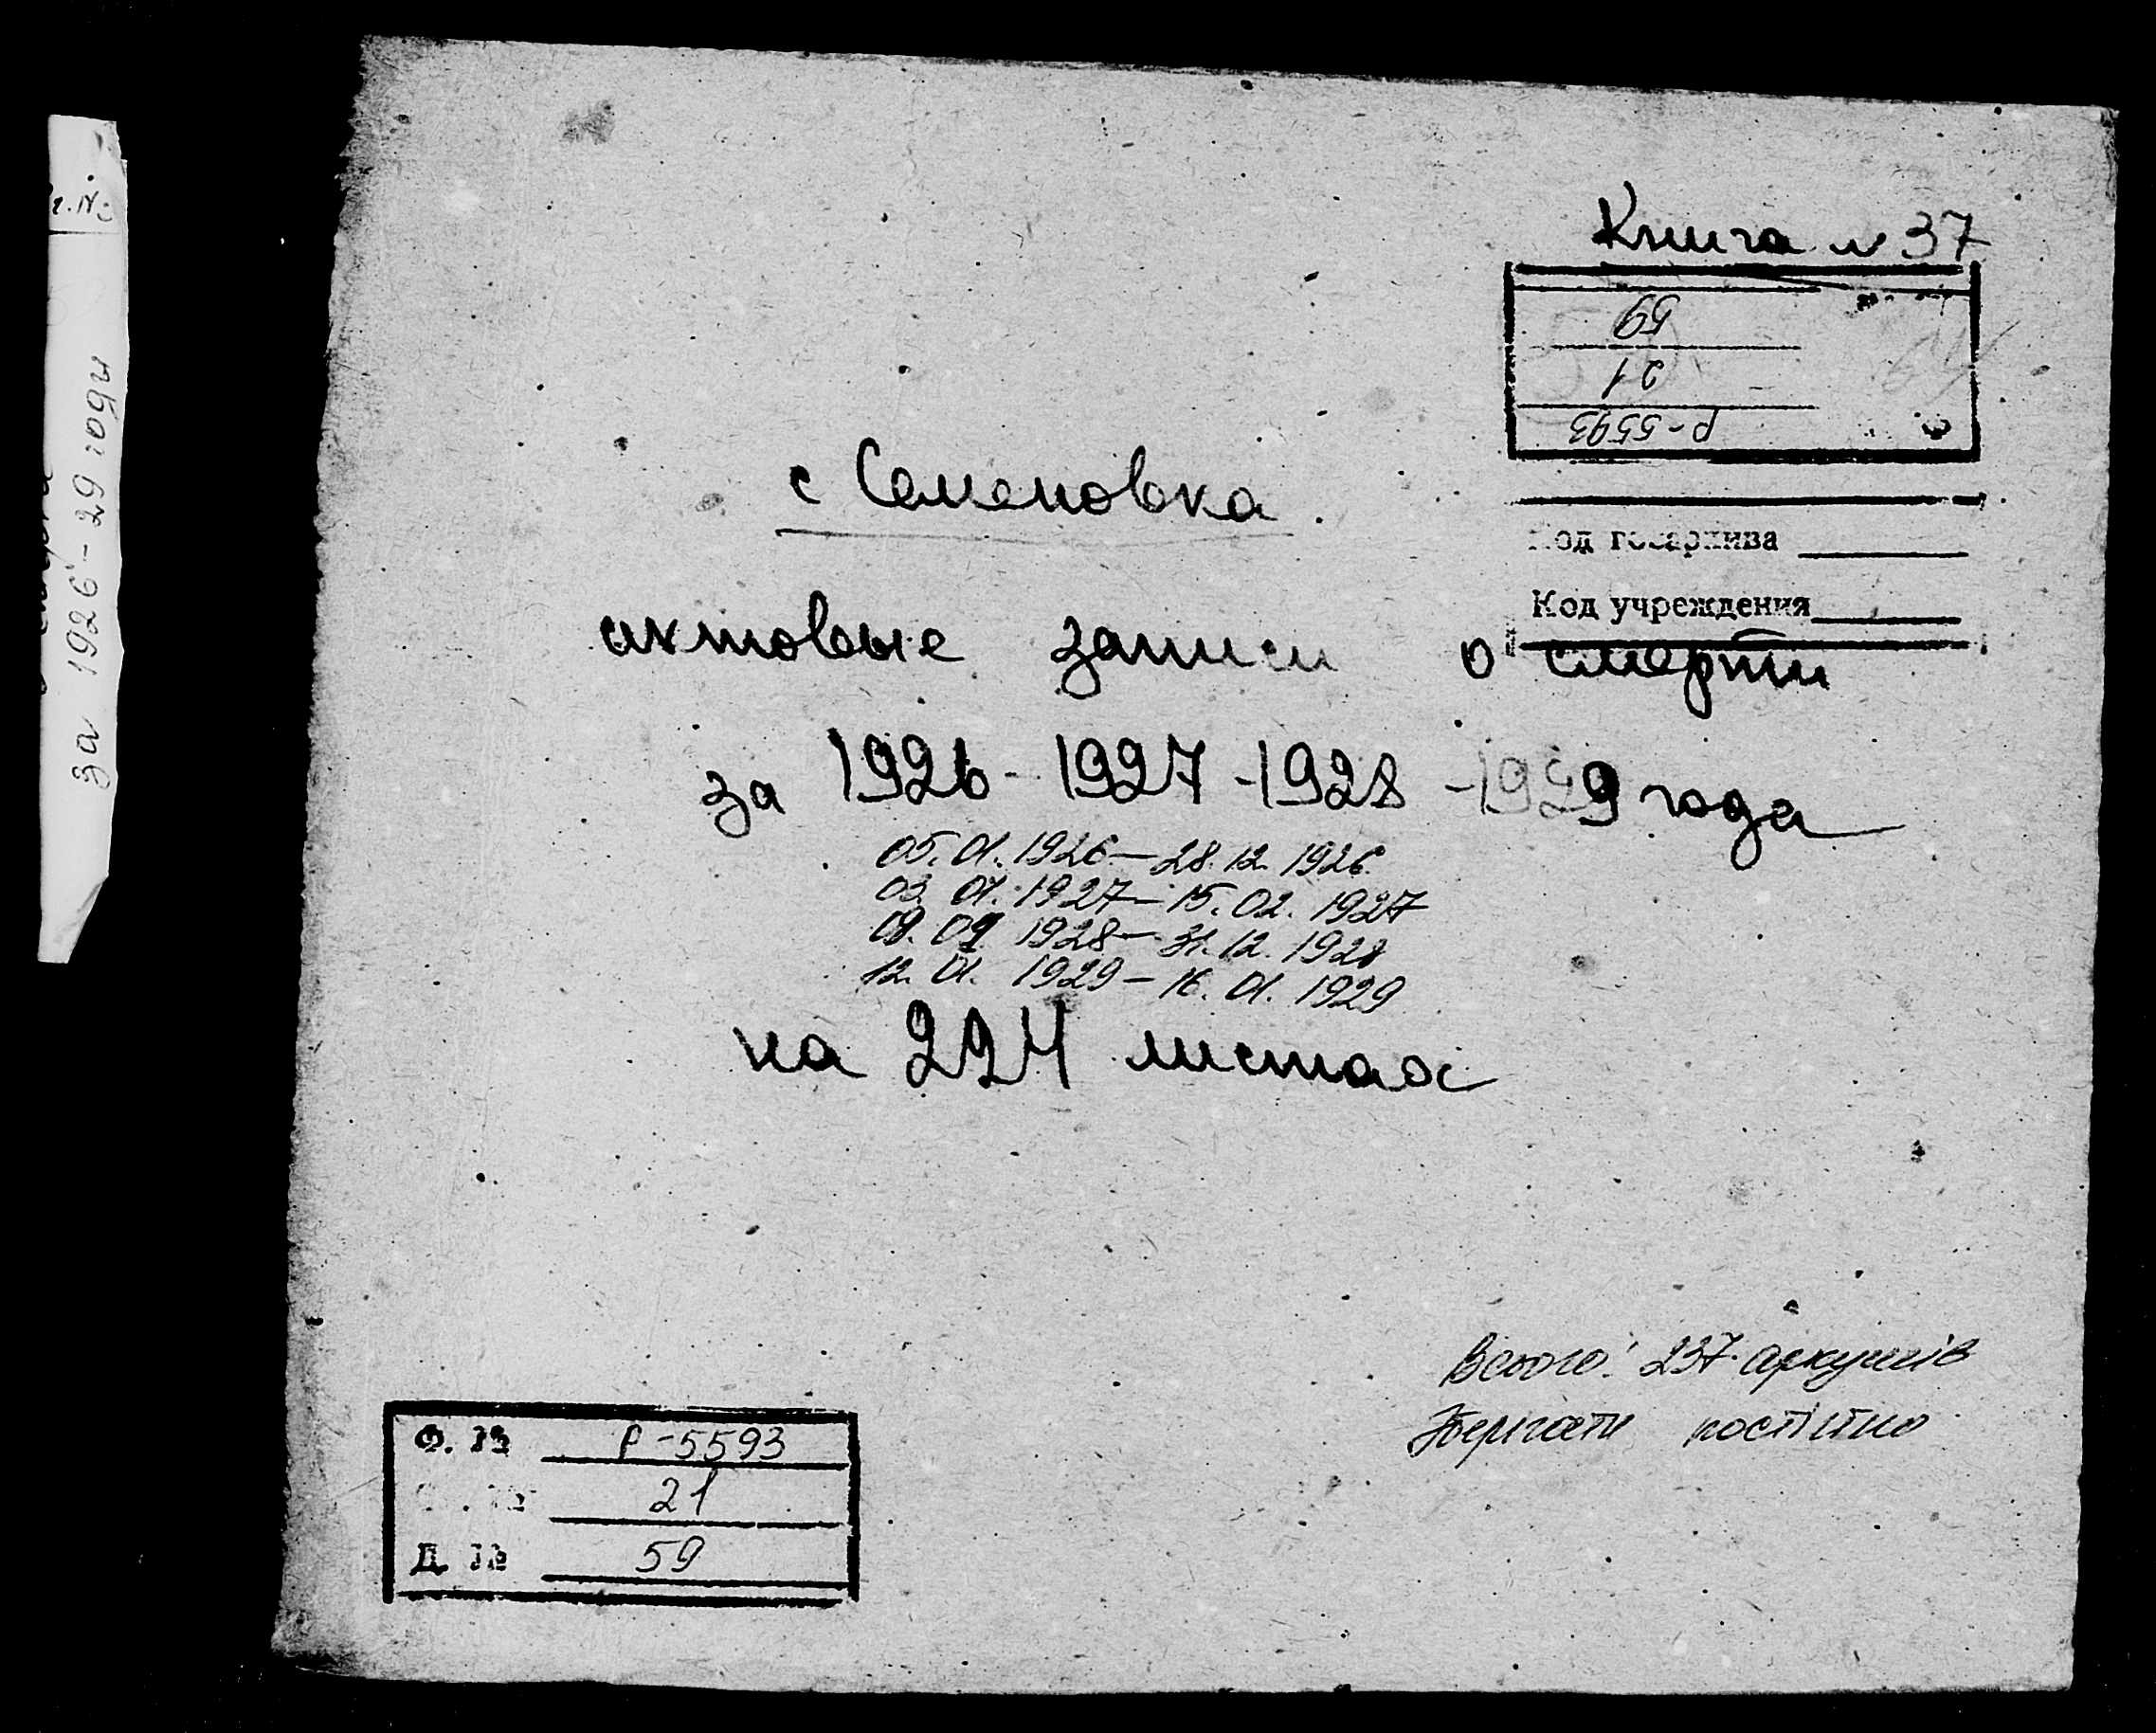 за 1926-29 годи
Книга № 37
59
21
Р-5593
с Семеновка.
Код госархива
Код учреждения
актовые записи о смерти
за 1926 - 1927 - 1928 - 1929 года
05.01.1926 - 28.12.1926
03.01.1927 - 15.02.1927
09.1928 - 31.12.1928
12.01.1929 - 16.01.1929
на 224 листах
Всього: 237 аркушів
Зберігати постійно
Ф. № Р-5593
21
Д. № 59